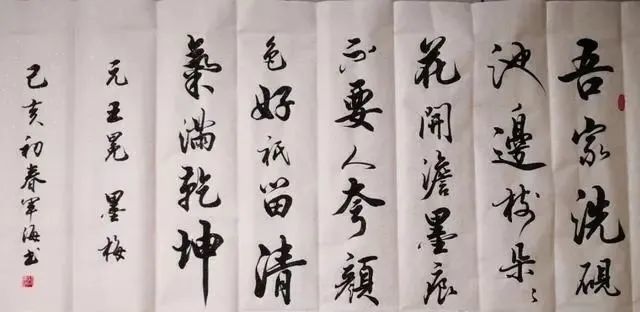 吾家洗硯
池邊樹朵〻
花開澹墨痕
不要人夸顏
色好祇留清
氣滿乾坤
元王冕墨梅
己亥初春軍海书